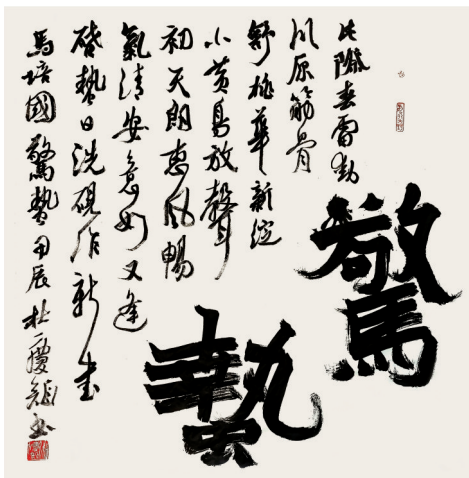 驚
蟄
此際春雷動
川原筋骨
舒桃華新綻
小黄鳥放聲
初天朗惠風暢
氣清安意如又逢
啓蟄日洗硯作新書
馬培國驚蟄甲辰杜慶書